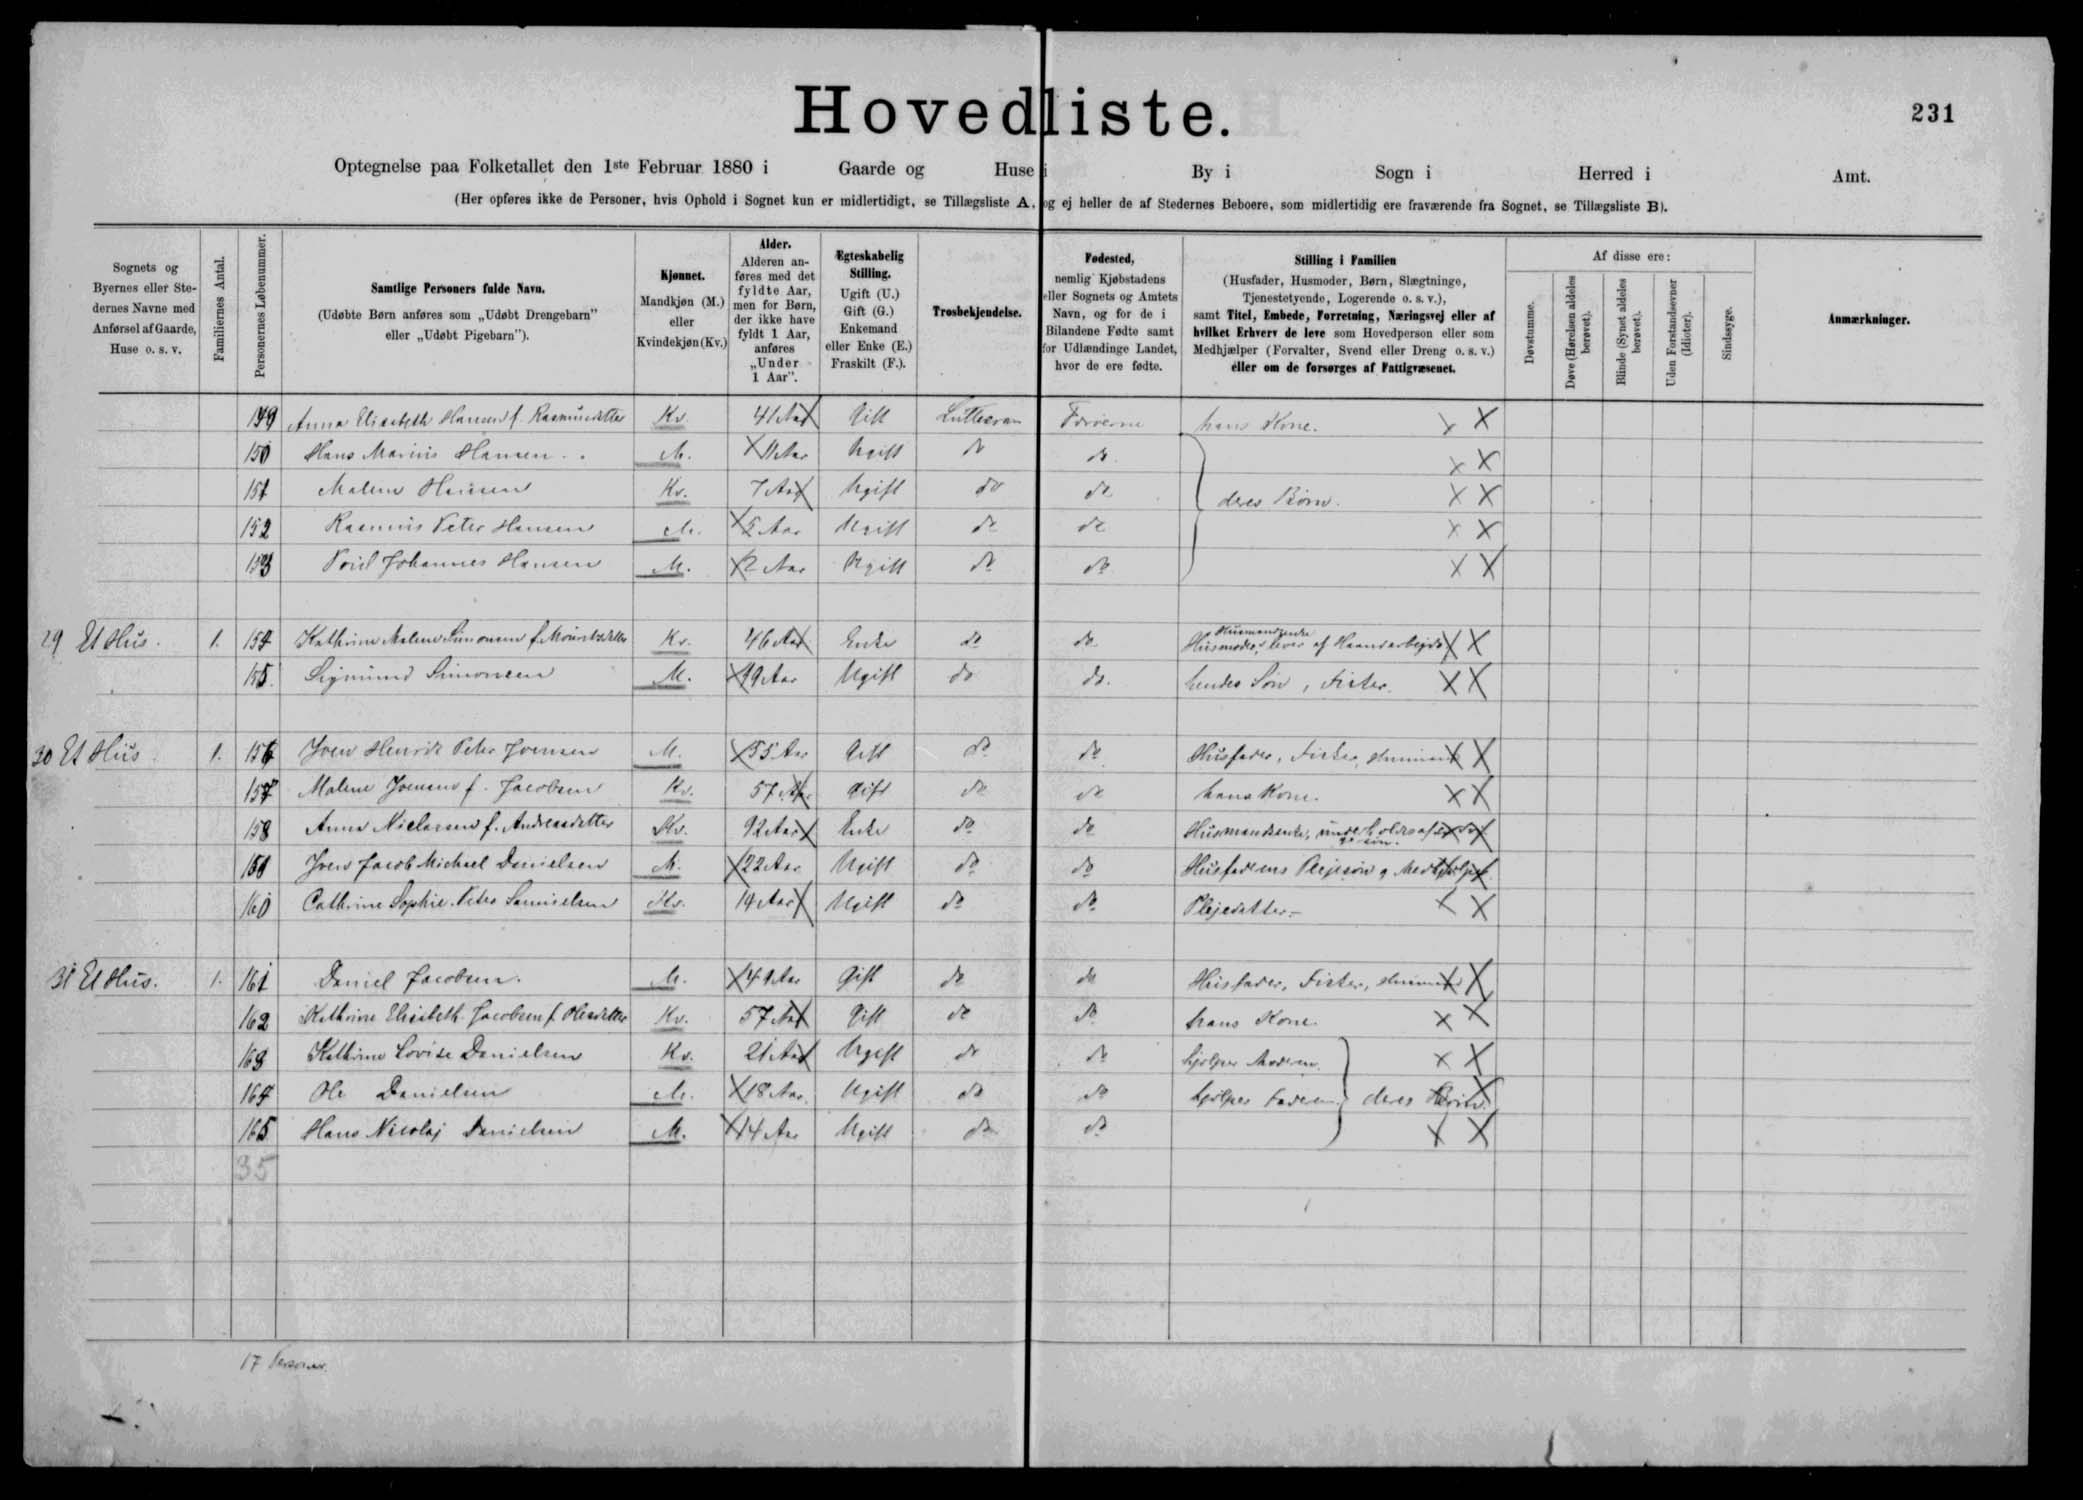 Hovedliste.
231
Optegnelse paa Folketallet den 1ste Februar 1880 i Gaarde og Huse i By i Sogn i Herred i Amt.
(Her opføres ikke de Personer, hvis Ophold i Sognet kun er midlertidigt, se Tillægsliste A, og ej heller de af Stedernes Beboere, som midlertidig ere fraværende fra Sognet, se Tillægsliste B).
Sognets og Byernes eller Stedernes Navne med Anførsel af Gaarde, Huse o. s. v.
Familiernes Antal.
Personernes Løbenummer.
Samtlige Personers fulde Navn.
(Udøbte Børn anføres som „Udøbt Drengebarn” eller „Udøbt Pigebarn”).
Kjønnet.
Mandkjøn (M.) eller Kvindekjøn (Kv.)
Alder.
Alderen anføres med det fyldte Aar, men for Børn, der ikke have fyldt 1 Aar, anføres „Under 1 Aar”.
Ægteskabelig Stilling.
Ugift (U.) Gift (G.) Enkemand eller Enke (E.) Fraskilt (F.).
Trosbekjendelse.
Fødested,
nemlig Kjøbstadens eller Sognets og Amtets Navn, og for de i Bilandene Fødte samt for Udlændinge Landet, hvor de ere fødte.
Stilling i Familien
(Husfader, Husmoder, Børn, Slægtninge, Tjenestetyende, Logerende o. s. v.),
samt Titel, Embede, Forretning, Næringsvej eller af hvilket Erhverv de leve som Hovedperson eller som Medhjælper (Forvalter, Svend eller Dreng o. s. v.) eller om de forsørges af Fattigvæsenet.
Af disse ere:
Døvstumme.
Døve (Hørelsen aldeles berøvet).
Blinde (Synet aldeles berøvet).
Uden Forstandsevner (Idioter).
Sindssyge.
Anmærkninger.
149 Anna Elisabeth Hansen f. Rasmusdatter Kv. 41 Aar Gift Luttersran Færøerne hans Kone. X X
150 Hans Marius Hansen M. 11 Aar Ugift do do X X
151 Malene Hansen Kv. 7 Aar Ugift do do deres Børn. X X
152 Rasmus Peter Hansen M. 5 Aar Ugift do do X X
153 Poul Johannes Hansen M. 2 Aar Ugift do do X X
29 Et Hus. 1. 154 Kathrine Malene Simonsen f. Mouritzdatter Kv. 46 Aar Enke do do Husmandsenke Husmoder, lever af Haandarbejde X X
155. Sigmund Simonsen M. 19 Aar Ugift do do. hendes Søn, Fisker. X X
30 Et Hus. 1. 156 Joen Henrik Peter Joensen M. 55 Aar Gift do do Husfader, Fisker, X X
157 Malene Joensen f. Jacobsen Kv. 57 Aar Gift do do hans Kone. X X
158 Anna Niclassen f. Andreasdatter Kv. 92 Aar Enke do do Husmandsenke, underholdes af
159 Joen Jacob Michael Danielsen M. 22 Aar Ugift do do Husfaderens Plejesøn og Medhjælper
160 Cathrine Sophie Petra Samuelsen Kv. 14 Aar Ugift do do Plejedatter X X
31 Et Hus. 1. 161 Daniel Jacobsen. M. 49 Aar Gift do do Husfader, Fisker, X X
162 Kathrine Elisabeth Jacobsen f. Olesdatter Kv. 57 Aar Gift do do hans Kone. X X
163 Kathrine Lovise Danielsen Kv. 21 Aar Ugift do do hjælper Moderen. X X
164 Ole Danielsen M. 18 Aar. Ugift do do hjælper Faderen deres Børn. X
165 Hans Nicolaj Danielsen M. 14 Aar Ugift do do X X
35
17 Personer.